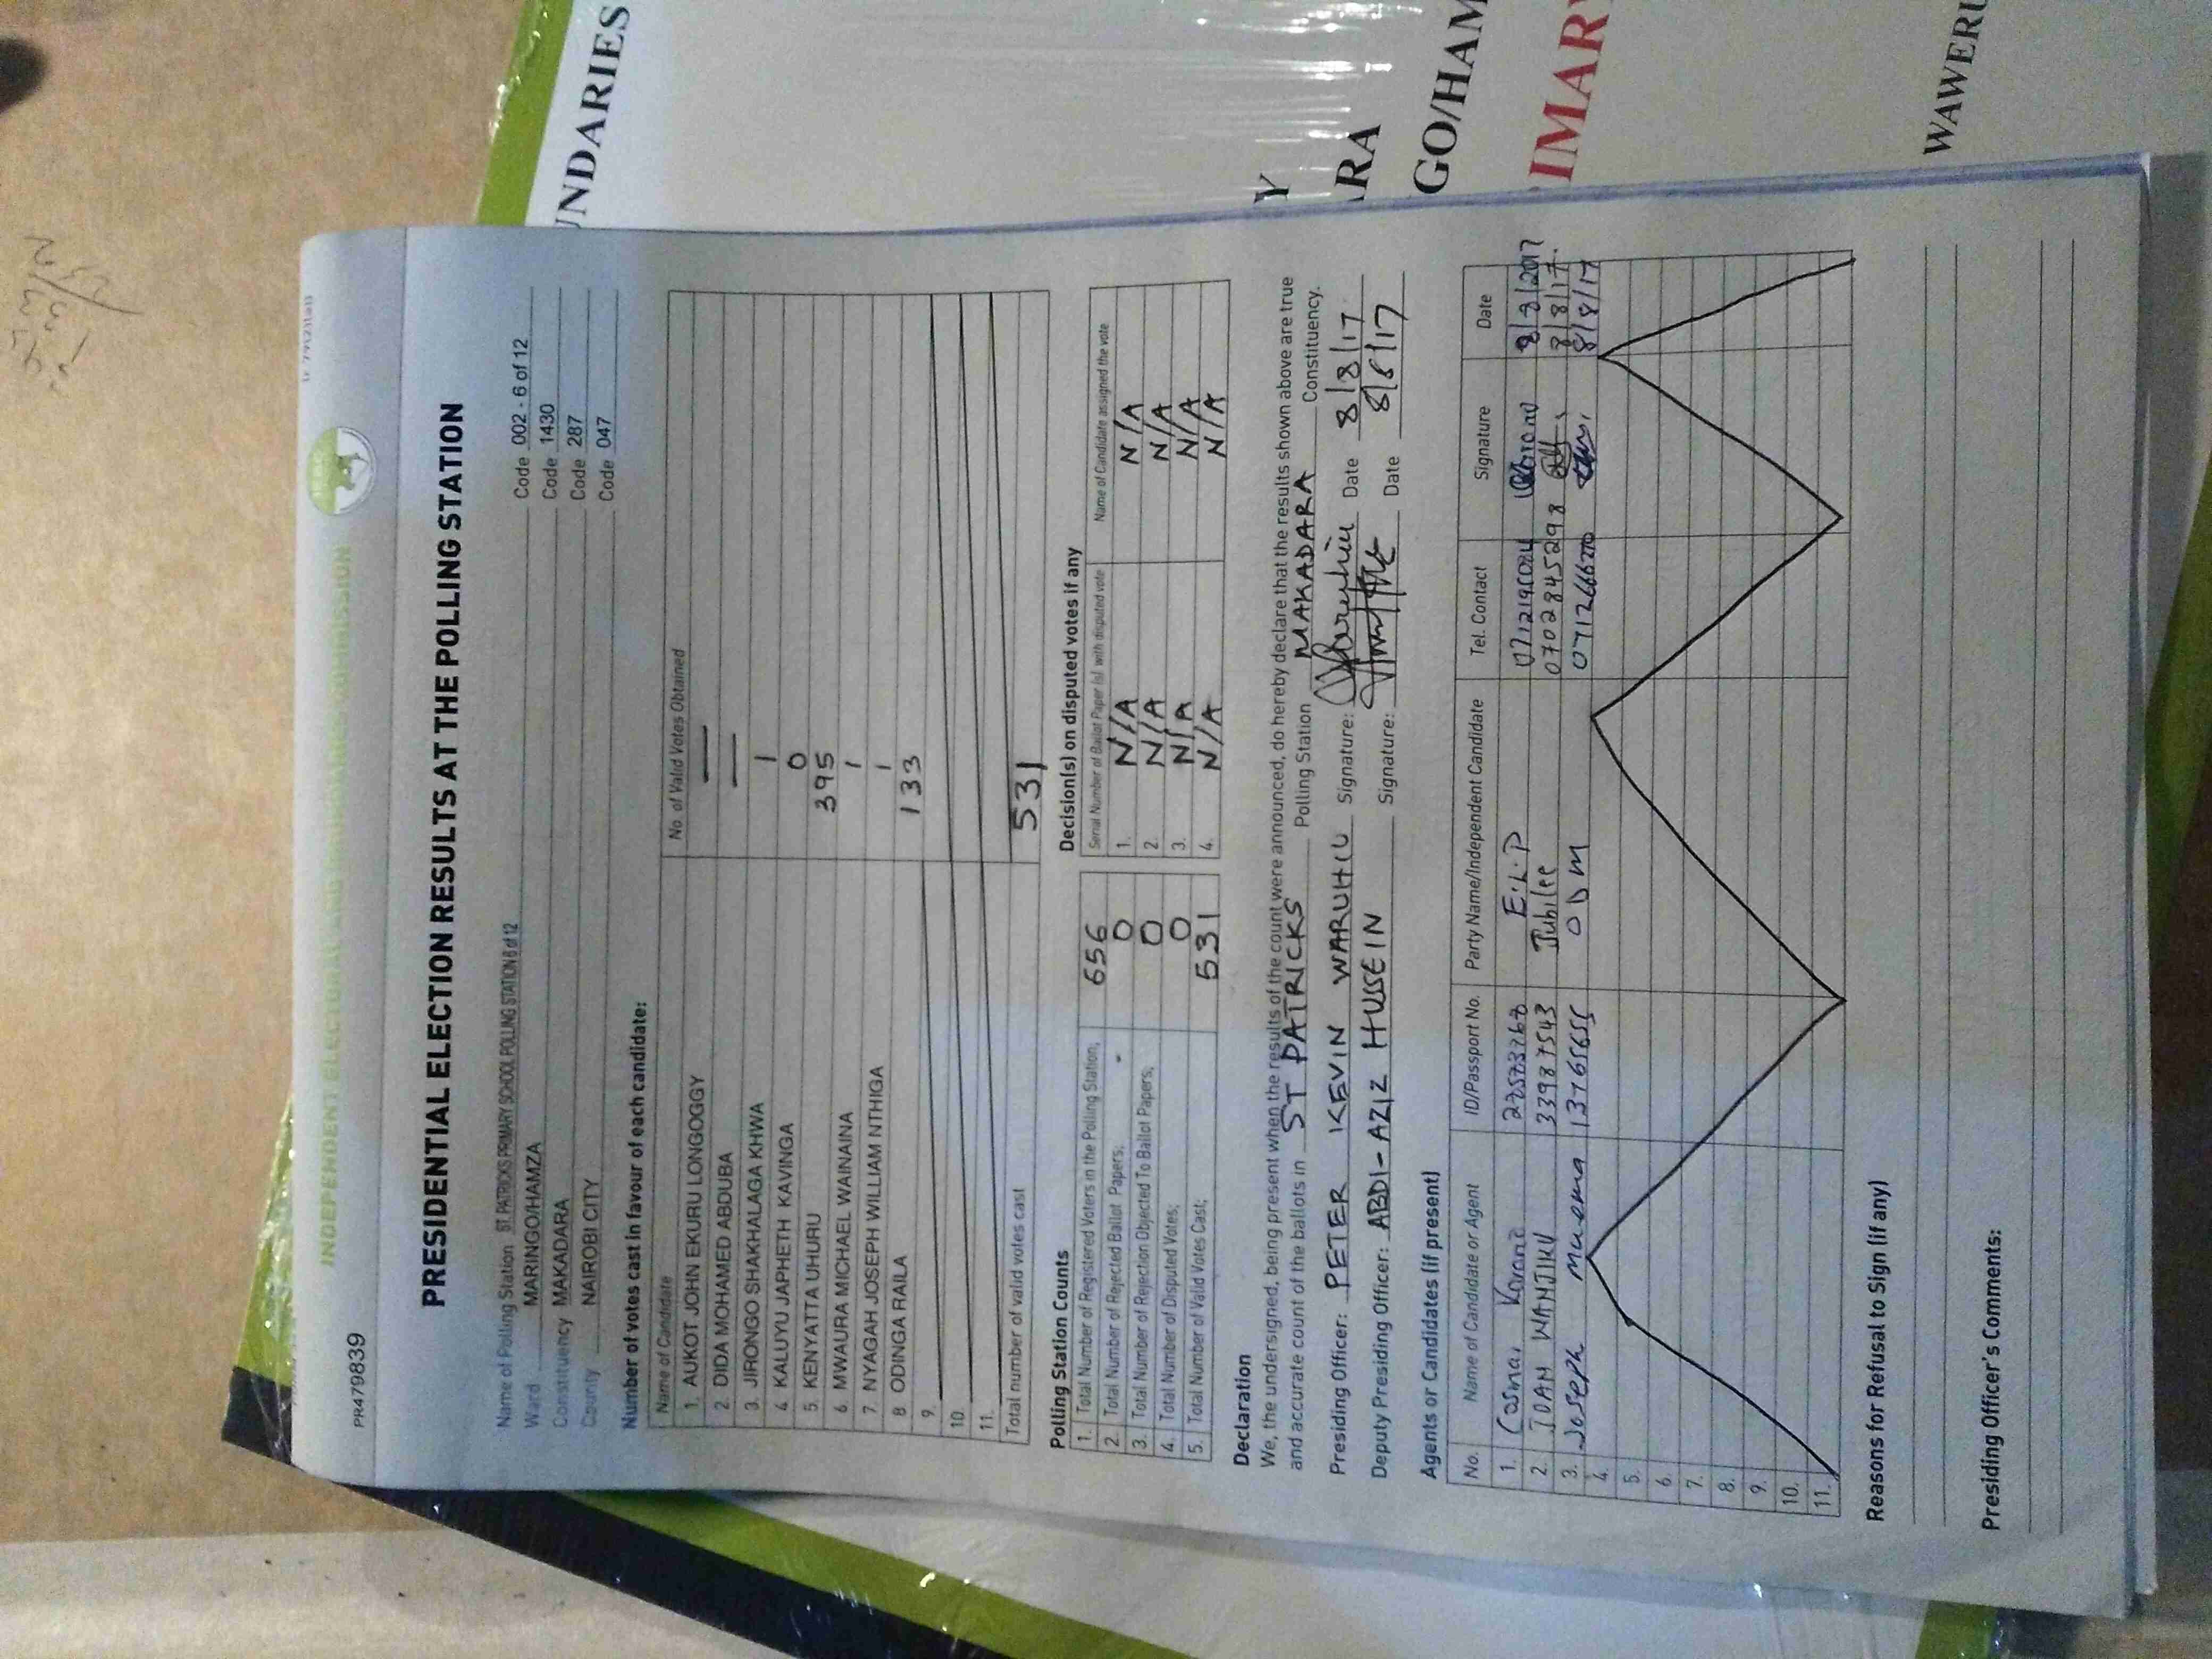 INDEPENDENT ELECTORAL AND BOUNDARIES COMMISSION
PR479839
PRESIDENTIAL ELECTION RESULTS AT THE POLLING STATION
Name of Polling Station ST. PATRICKS PRIMARY SCHOOL POLLING STATION 6 of 12 Code 002 - 6 of 12
Ward MARINGO/HAMZA Code 1430
Constituency MAKADARA Code 287
County NAIROBI CITY Code 047
Number of votes cast in favour of each candidate:
Name of Candidate No. of Valid Votes Obtained
1. AUKOT JOHN EKURU LONGOGGY —
2. DIDA MOHAMED ABDUBA —
3. JIRONGO SHAKHALAGA KHWA 1
4. KALUYU JAPHETH KAVINGA 0
5. KENYATTA UHURU 395
6 MWAURA MICHAEL WAINAINA 1
7. NYAGAH JOSEPH WILLIAM NTHIGA 1
8 ODINGA RAILA 133
9.
10.
11.
Total number of valid votes cast 531
Polling Station Counts
1. Total Number of Registered Voters in the Polling Station; 656
2. Total Number of Rejected Ballot Papers; 0
3. Total Number of Rejection Objected To Ballot Papers; 0
4. Total Number of Disputed Votes; 0
5. Total Number of Valid Votes Cast; 531
Decision(s) on disputed votes if any
Serial Number of Ballot Paper (s) with disputed vote Name of Candidate assigned the vote
1. N/A N/A
2. N/A N/A
3. N/A N/A
4. N/A N/A
Declaration
We, the undersigned, being present when the results of the count were announced, do hereby declare that the results shown above are true
and accurate count of the ballots in ST PATRICKS Polling Station MAKADARA Constituency.
Presiding Officer: PETER KEVIN WARUHIU Signature: Date 8/8/17
Deputy Presiding Officer: ABDI-AZIZ HUSSEIN Signature: Date 8/8/17
Agents or Candidates (if present)
No. Name of Candidate or Agent ID/Passport No. Party Name/Independent Candidate Tel. Contact Signature Date
1. E.L.P 8/8/2017
2. JOAN WANJIKU 33987543 Jubilee 0702845298 8/8/17.
3. Joseph 13765655 ODM 8/8/17
4.
5.
6.
7.
8.
9.
10.
11.
Reasons for Refusal to Sign (if any)
Presiding Officer's Comments:
UNDARIES
Y
RA
GO/HAM
IMAR
WAWERU